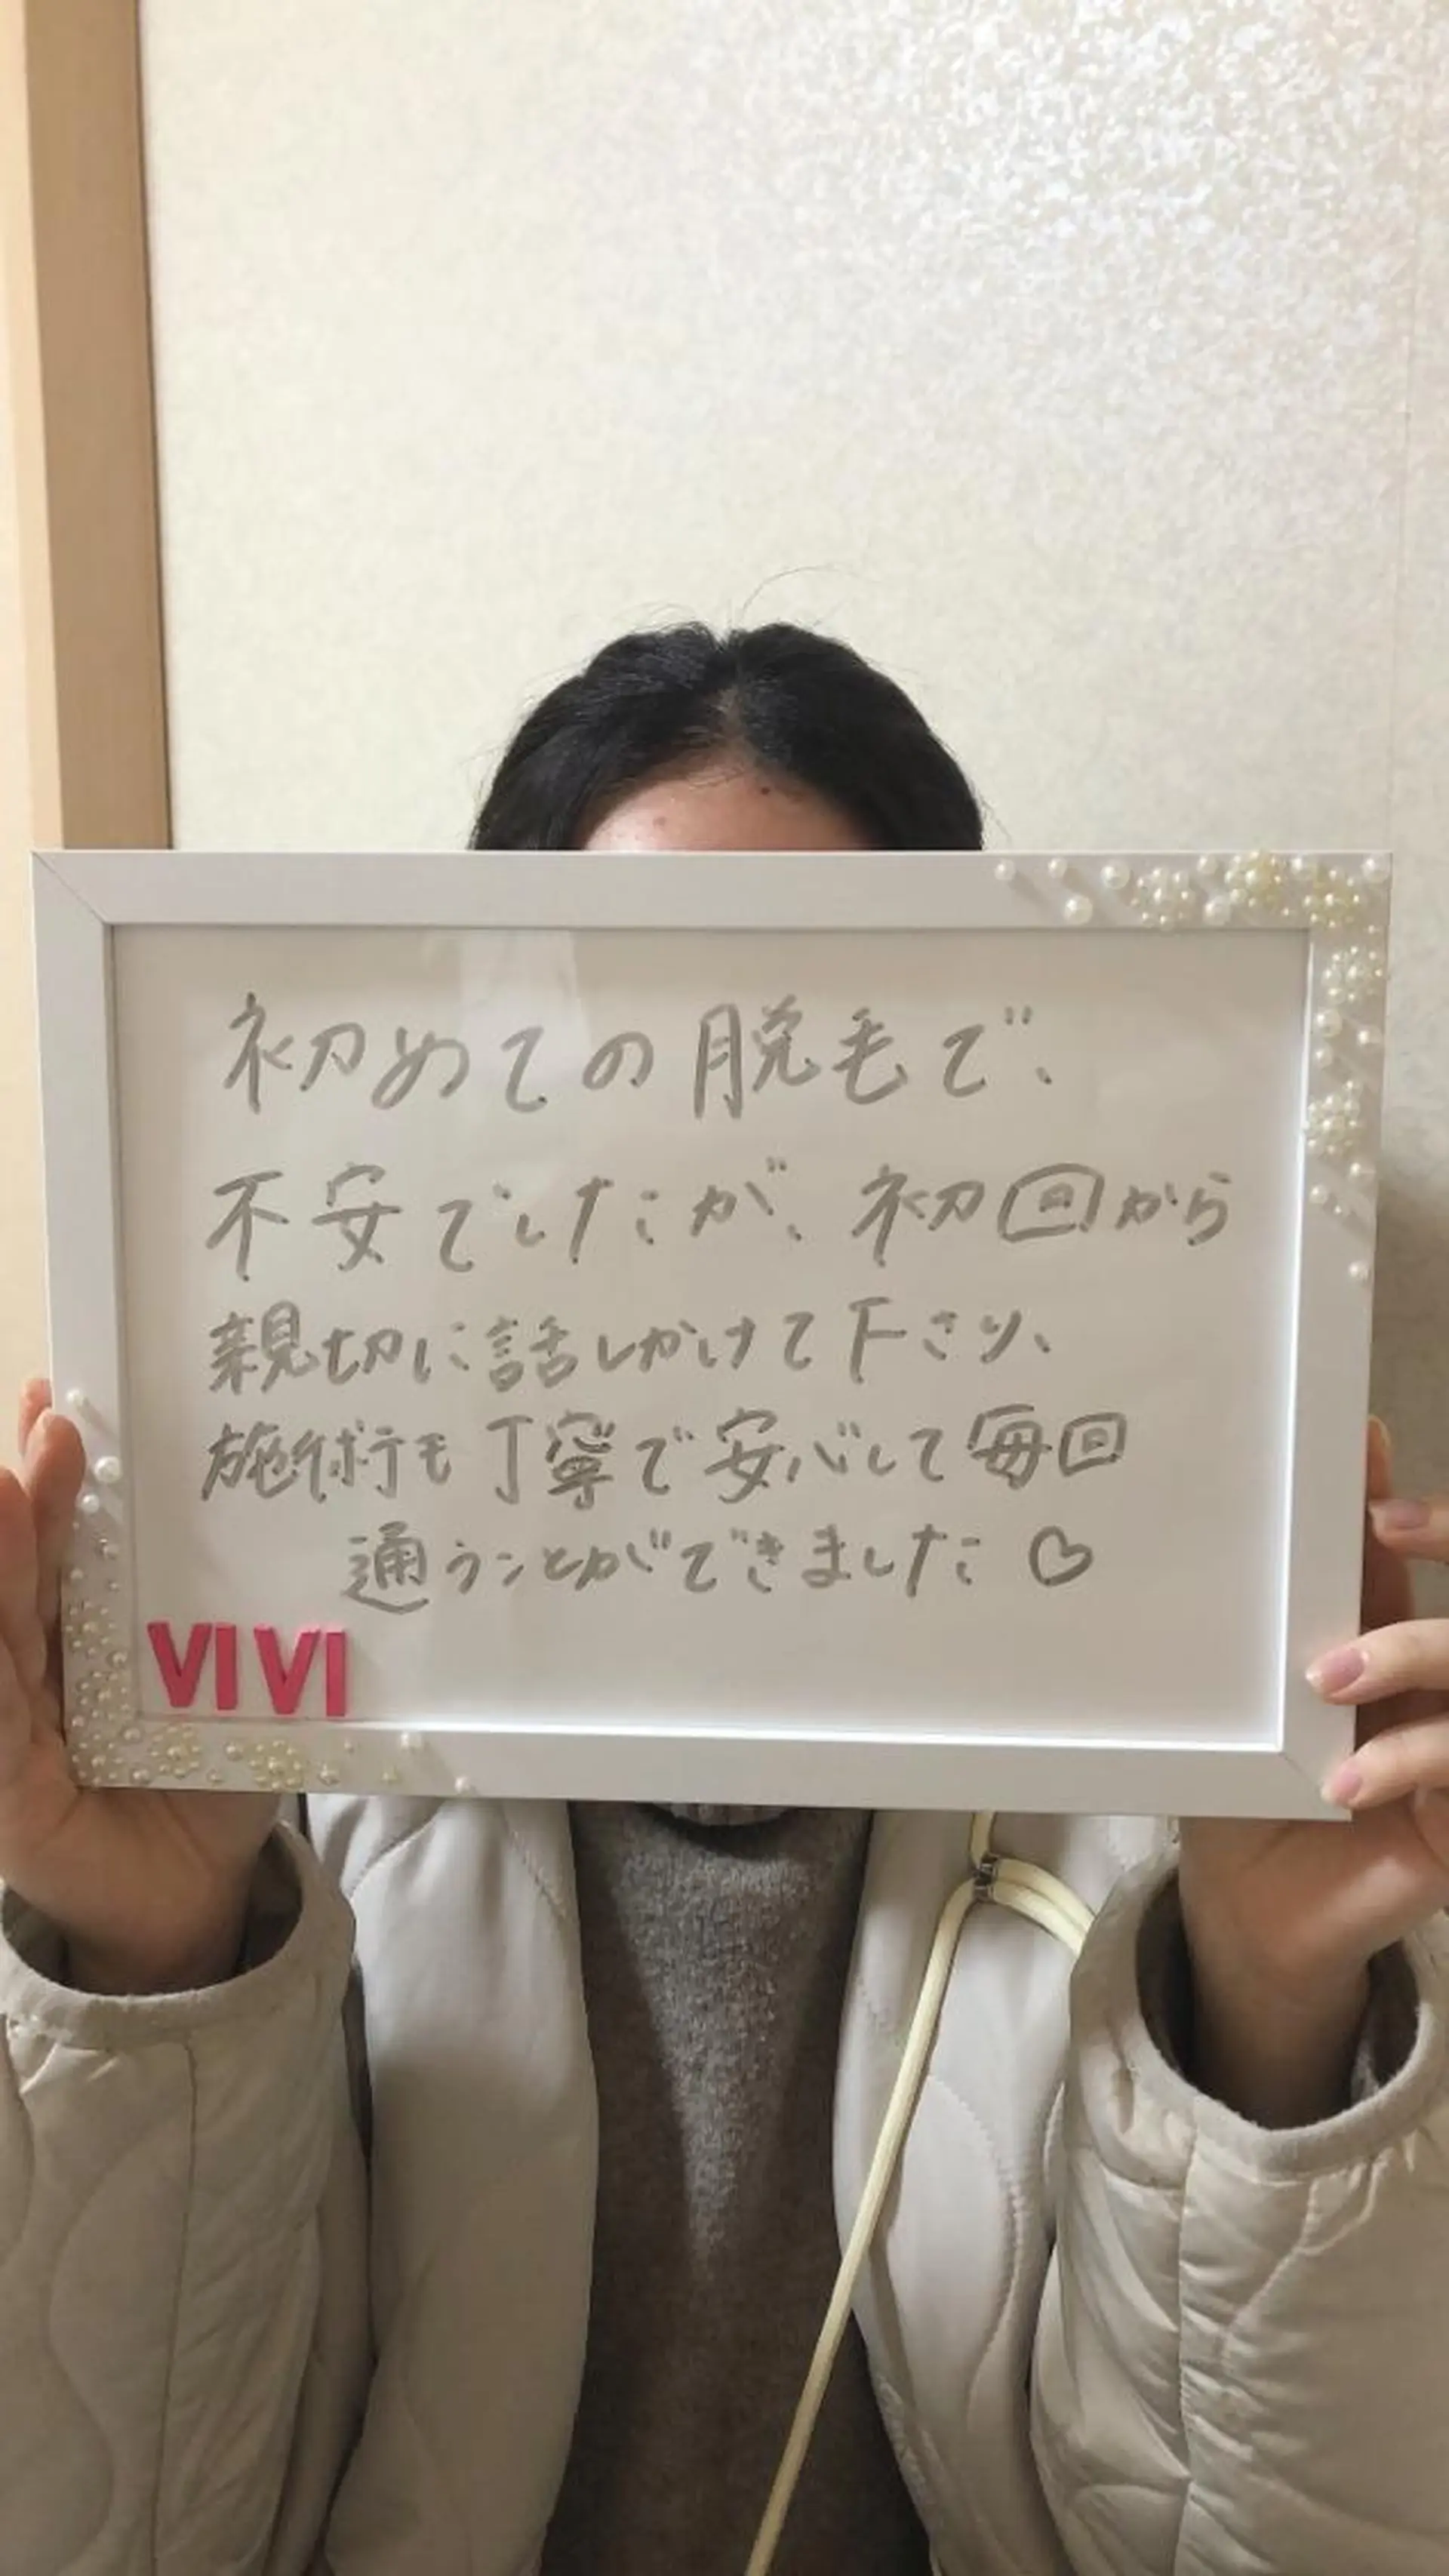 初めての脱毛で、
不安でしたが、初回から
親切に話しかけて下さり、
施術も丁寧で安心して毎回
通うことができました♡
VIVI